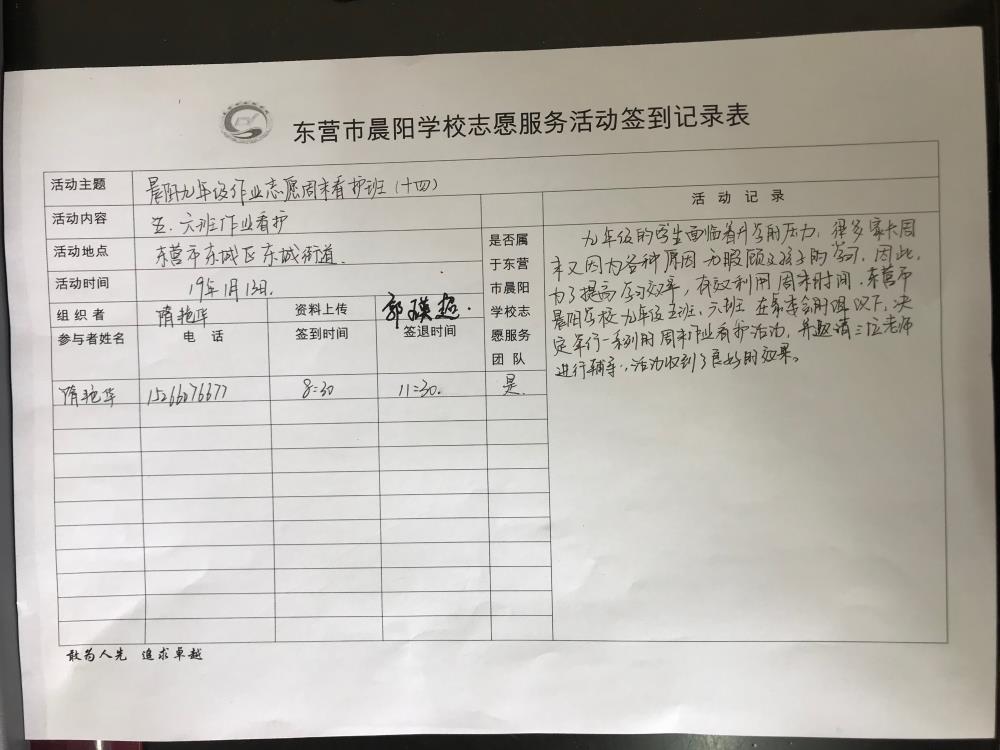 东营市晨阳学校志愿服务活动签到记录表
活动主题 晨阳九年级作业志愿周末看护班（十四）
活动内容 五.六班作业看护
活动地点 东营市东城区东城街道.
活动时间 19年1月13日.
组织者 隋艳华 资料上传 郭瑛超.
参与者姓名 电话 签到时间 签退时间
是否属
于东营
市晨阳
学校志
愿服务
团队
隋艳华 15266076677 8:30 11:30. 是.
活动记录
九年级的学生面临着升学的压力，很多家长周
末又因为各种原因无暇顾及孩子的学习，因此，
为了提高学习效率，有效利用周末时间，东营市
晨阳学校九年级五班、六班在家委会的组织下，决
定举行一系列的周末作业看护活动，并邀请三位老师
进行辅导，活动收到了良好的效果。
敢为人先 追求卓越